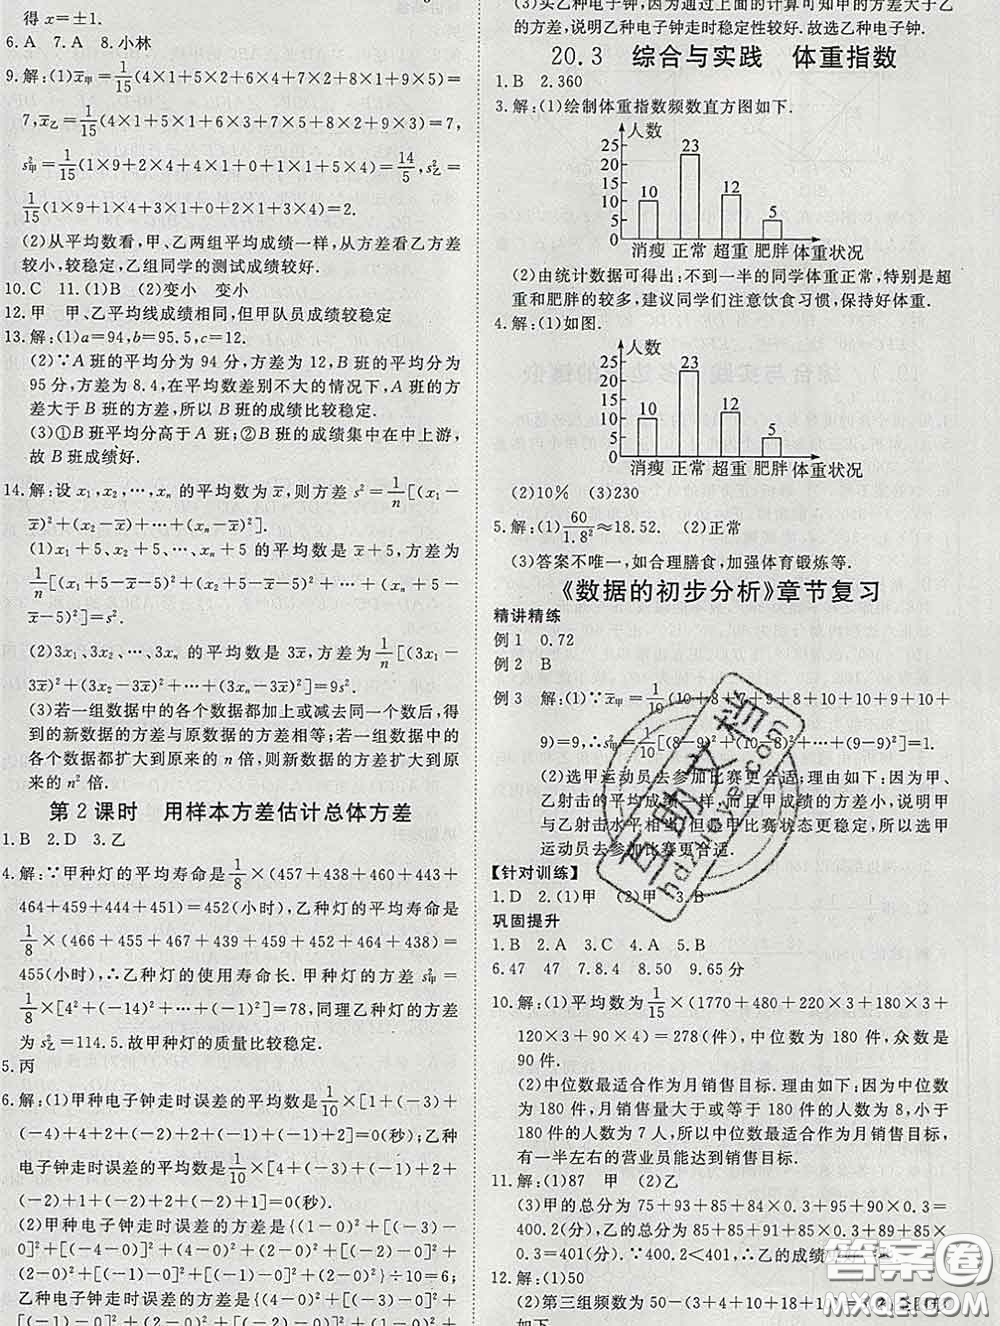 得 x=±1.
6.A　7.A　8.小林
9.解:(1)x̄甲=1/15(4×1+5×2+6×5+7×2+8×1+9×5)=
7,x̄乙=1/15(4×1+5×1+6×2+7×4+8×2+9×3)=7,
s²甲=1/15(1×9+2×4+4×1+0+1×1+5×4)=14/5,s²乙=
1/15(1×9+1×4+2×1+0+2×1+3×4)=2.
(2)从平均数看,甲、乙两组平均成绩一样,从方差看乙方差
较小,较稳定,乙组同学的测试成绩较好.
10.C　11.(1)B　(2)变小　变小
12.甲　甲、乙平均线成绩相同,但甲队员成绩较稳定
13.解:(1)a=94,b=95.5,c=12.
(2)∵A班的平均分为94分,方差为12,B班的平均分为
95分,方差为8.4,在平均数差别不大的情况下,A班的方差
大于B班的方差,所以B班的成绩比较稳定.
(3)①B班平均分高于A班;②B班的成绩集中在中上游,
故B班成绩好.
14.解:设x₁,x₂,…,xₙ的平均数为x̄,则方差s²=1/n[(x₁−
x̄)²+(x₂−x̄)+…+(xₙ−x̄)²].
(1)x₁+5、x₂+5、…、xₙ+5的平均数是x̄+5,方差为
1/n[(x₁+5−x̄−5)²+(x₂+5−x̄−5)²+…+(xₙ+5−
x̄−5)²]=s²;
(2)3x₁、3x₂、…、3xₙ的平均数是3x̄,方差为1/n[(3x₁−
3x̄)²+(3x₂−3x̄)²+…+(3xₙ−3x̄)²]=9s².
(3)若一组数据中的各个数据都加上或减去同一个数后,得
到的新数据的方差与原数据的方差相等;若一组数据中的
各个数据都扩大到原来的n倍,则新数据的方差扩大到原
来的n²倍.
第2课时　用样本方差估计总体方差
1.B　2.D　3.乙
4.解:∵甲种灯的平均寿命是1/8×(457+438+460+443+
464+459+464+451)=452(小时),乙种灯的平均寿命是
1/8×(466+455+467+439+459+452+464+438)=
455(小时),∴乙种灯的使用寿命长.甲种灯的方差s²甲=
1/8×[4²+(−14)²+…+(−1)²]=78,同理乙种灯的方差
为s²乙=114.5.故甲种灯的质量比较稳定.
5.丙
6.解:(1)甲种电子钟走时误差的平均数是1/10×[1+(−3)+
(−4)+4+2+(−2)+2+(−1)+(−1)+2]=0(秒);乙种
电子钟走时误差的平均数是1/10×[4+(−3)+(−1)+2+
(−2)+1+(−2)+2+(−2)+1]=0(秒).
(2)甲种电子钟走时误差的方差是{(1−0)²+[(−3)−
0]²+[(−4)−0]²+(4−0)²+(2−0)²+[(−2)−0]²+
(2−0)²+[(−1)−0]²+(2−0)²}÷10=6;
乙种电子钟走时误差的方差是{(4−0)²+[(−3)−0]²+
(3)买乙种电子钟,因为通过上面的计算可知甲的方差大于乙
的方差,说明乙种电子钟走时稳定性较好.故选乙种电子钟.
20.3　综合与实践　体重指数
1.B　2.360
3.解:(1)绘制体重指数频数直方图如下.
人数
25
20
15
10
5
0
10
23
12
5
消瘦 正常 超重 肥胖 体重状况
(2)由统计数据可得出:不到一半的同学体重正常,特别是超
重和肥胖的较多,建议同学们注意饮食习惯,保持好体重.
4.解:(1)如图.
人数
25
20
15
10
5
0
消瘦 正常 超重 肥胖 体重状况
(2)10%　(3)230
5.解:(1)60/1.8²≈18.52.　(2)正常
(3)答案不唯一,如合理膳食,加强体育锻炼等.
《数据的初步分析》章节复习
精讲精练
例1　0.72
例2　B
例3　解:(1)∵x̄甲=1/10(10+8+7+9+8+10+10+9+10+
9)=9,∴s²甲=1/10[(8−9)²+(10−9)²…+(9−9)²]=1.
(2)选甲运动员去参加比赛更合适.理由如下:因为甲、
乙射击的平均成绩一样,而且甲的方差小,说明甲
与乙射击水平相当,但是甲比赛状态更稳定,所以选甲
运动员去参加比赛更合适.
【针对训练】
1.D　2.(1)甲　(2)甲　3.B
巩固提升
1.B　2.A　3.C　4.A　5.B
6.47　47　7.8.4　8.50　9.65分
10.解:(1)平均数为1/15×(1770+480+220×3+180×3+
120×3+90×4)=278(件),中位数为180件,众数是
90件.
(2)中位数最适合作为月销售目标.理由如下:因为中位数
为180件,月销售量大于或等于180件的人数为8,小于
180件的人数为7人,所以中位数最适合作为月销售目标,
有一半左右的营业员能达到销售目标.
11.解:(1)87　甲　(2)乙
(3)甲的总分为75+93+85+84×0.3+90×0.7=
400.2(分),乙的总分为85+85+91+85×0.3+89×
0.3=401(分).∵400.2<401,∴乙的成绩
12.解:(1)50
(2)第三组频数为50−(3+4+10+18+1
如下.
互助文档
hdzuoye.com
答案卷
MXQE.COM